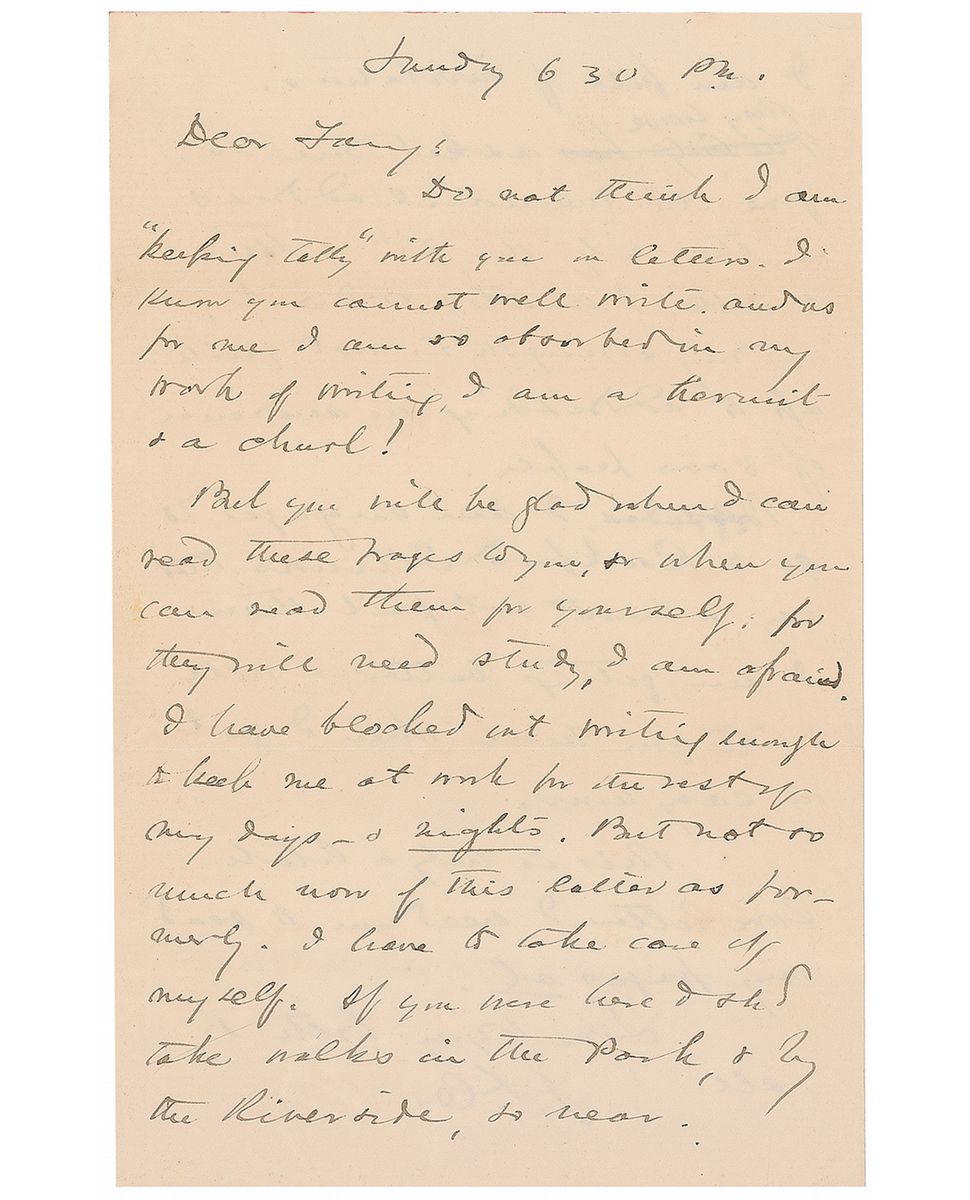 Sunday 6 30 P.M.
Dear Fanny:
Do not think I am
"keeping tally" with you in letters. I
know you cannot well write. and as
for me I am so absorbed in my
work of writing, I am a hermit
& a churl!
But you will be glad when I can
read these pages to you, or when you
can read them for yourself; for
they will need study, I am afraid.
I have blocked out writing enough
to keep me at work for the rest of
my days – & nights. But not so
much now of this latter as for-
merly. I have to take care of
myself. If you were here I shd
take walks in the Park, & by
the Riverside, so near.